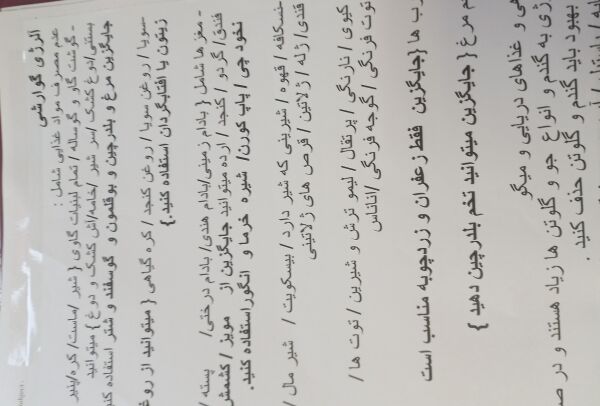 الرژی گوارشی
عدم مصرف مواد غذایی شامل :
- گوشت گاو و گوساله / تمام لبنیات گاوی { شیر /ماست/ کره/پنیر
بستنی/دوغ کشک /سر شیر /خامه/آش کشک و دوغ } میتوانید
جایگزین مرغ و بلدرچین و بوقلمون و گوسفند و شتر استفاده کنید
-سویا / روغن سویا / روغن کنجد / کره گیاهی { میتوانید از روغن
زیتون یا آفتابگردان استفاده کنید.}
- مغز ها شامل { بادام زمینی/بادام هندی/ بادام درختی/ پسته /
فندق/ گردو / کنجد / ارده میتوانید جایگزین از مویز / کشمش
نخود چی / پاپ کورن/ شیره خرما و انگور استفاده کنید.
/ نسکافه / قهوه / شیرینی که شیر دارد / بیسکویت / شیر مال /
قندی/ ژله / ژلاتین / قرص های ژلاتینی
کیوی / نارنگی / پرتقال / لیمو ترش و شیرین / توت ها /
توت فرنگی / گوجه فرنگی /آناناس
ها {جایگزین فقط زعفران و زردچوبه مناسب است
مرغ { جایگزین میتوانید تخم بلدرچین دهید }
و غذاهای دریایی و میگو
به گندم و انواع جو و گلوتن ها زیاد هستند و در
بهبود باید گندم و گلوتن حذف کنید .